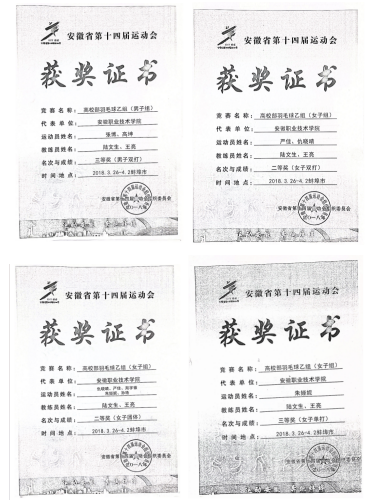 安徽省第十四届运动会
获奖证书
竞赛名称：高校部羽毛球乙组（男子组）
代表单位：安徽职业技术学院
运动员姓名：张博、高坤
教练员姓名：陆文生、王亮
名次与成绩：三等奖（男子双打）
时间地点：2018.3.26-4.2蚌埠市
安徽省第十四届运动会组织委员会
安徽省第十四届运动会
获奖证书
竞赛名称：高校部羽毛球乙组（女子组）
代表单位：安徽职业技术学院
运动员姓名：严佳、仇晓晴
教练员姓名：陆文生、王亮
名次与成绩：二等奖（女子双打）
时间地点：2018.3.26-4.2蚌埠市
安徽省第十四届运动会组织委员会
安徽省第十四届运动会
获奖证书
竞赛名称：高校部羽毛球乙组（女子组）
代表单位：安徽职业技术学院
运动员姓名：仇晓晴、严佳
教练员姓名：陆文生、王亮
名次与成绩：二等奖（女子团体）
时间地点：2018.3.26-4.2蚌埠市
安徽省第十四届运动会组织委员会
安徽省第十四届运动会
获奖证书
竞赛名称：高校部羽毛球乙组（女子组）
代表单位：安徽职业技术学院
运动员姓名：
教练员姓名：陆文生、王亮
名次与成绩：三等奖（女子单打）
时间地点：2018.3.26-4.2蚌埠市
安徽省第十四届运动会组织委员会